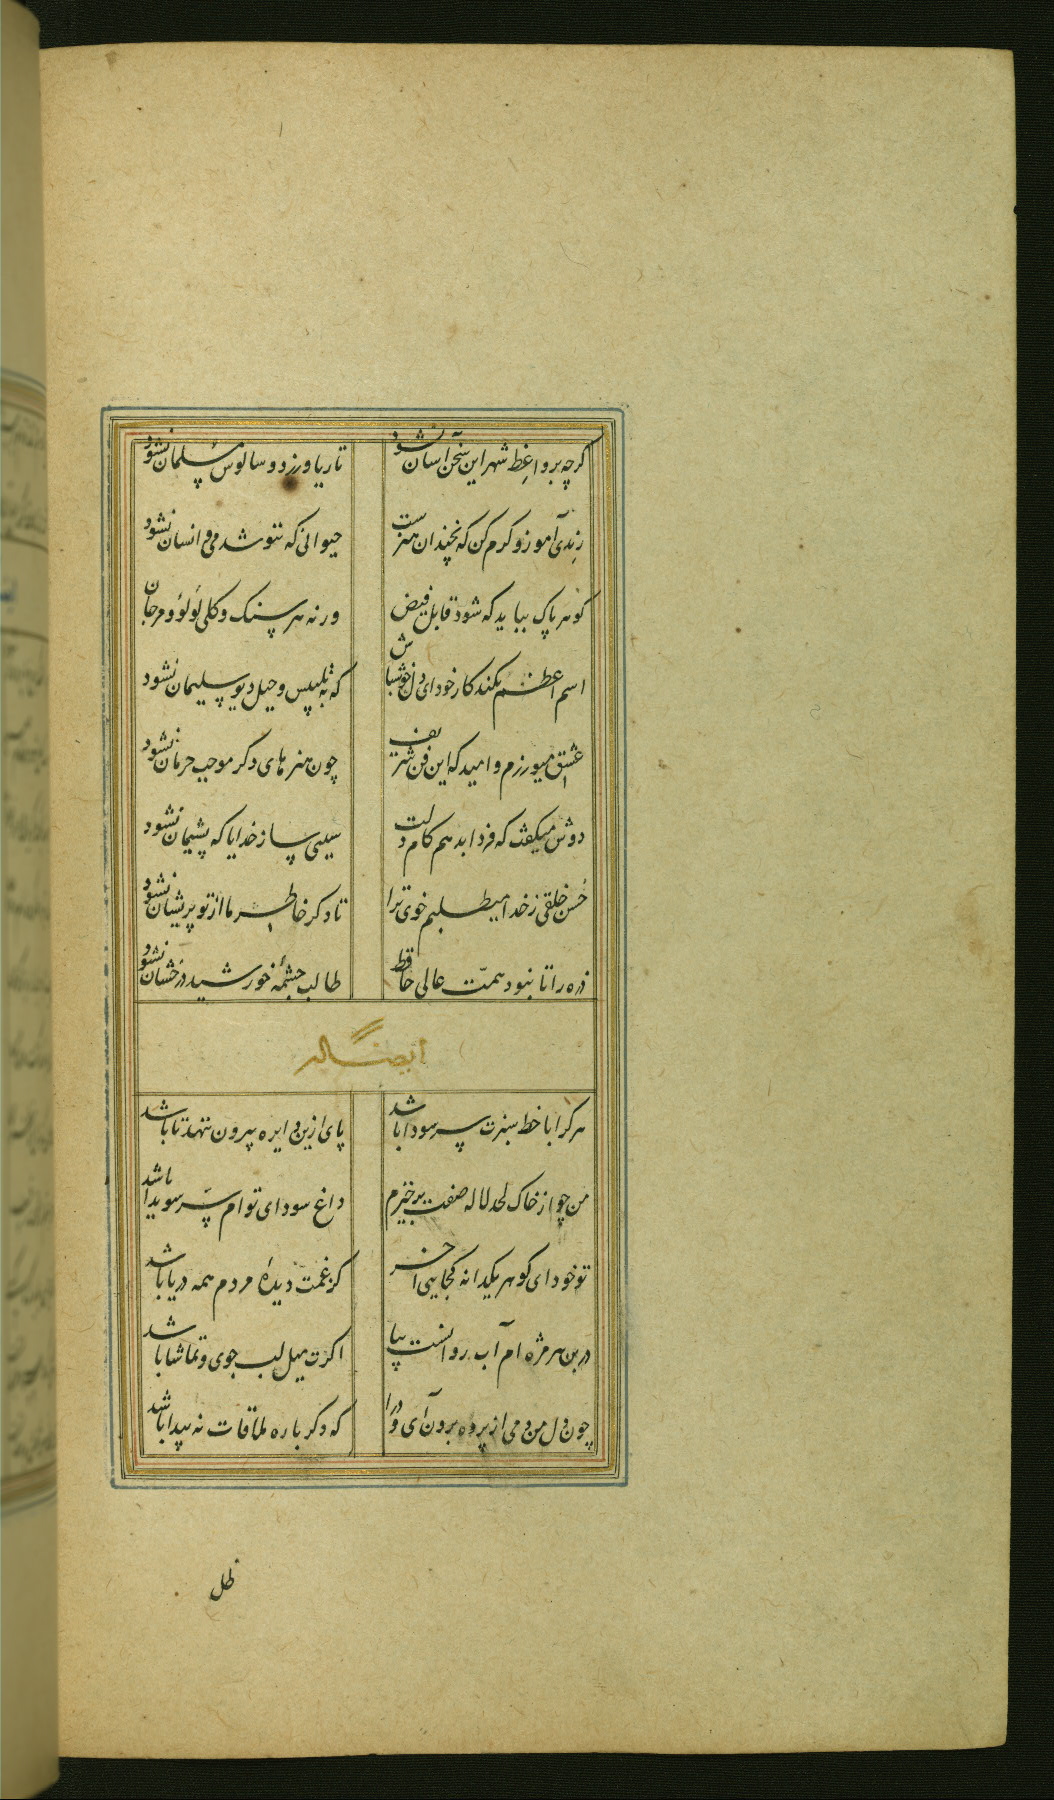 کرچه بر واعظ شهر این سخن آسان نشود
تا ریا ورزد و سالوس مسلمان نشود
رندی آموز و کرم کن که نچندان هنرست
حیوانی که ننوشد می و انسان نشود
کوهر پاک بباید که شود قابل فیض
ورنه هر سنک و کلی لؤلؤ و مرجان نشود
اسم اعظم بکند کار خود ای دل خوش باش
که به تلبیس و حیل دیو سلیمان نشود
عشق میورزم و امید که این فن شریف
چون هنرهای دکر موجب حرمان نشود
دوش میکفت که فردا بدهم کام دلت
سببی ساز خدایا که پشیمان نشود
حسن خلقی ز خدا میطلبم خوی ترا
تا دکر خاطر ما از تو پریشان نشود
ذره را تا نبود همّت عالی حافظ
طالب چشمهٔ خورشید درخشان نشود
ایضاً له
هر کرا با خط سبزت سر سودا باشد
پای ازین دایره بیرون ننهد تا باشد
من چو از خاک لحد لاله صفت برخیزم
داغ سودای توام سرّ سویدا باشد
تو خود ای کوهر یکدانه کجایی آخر
کز غمت دیدهٔ مردم همه دریا باشد
در بن هر مژه ام آب روانست بیا
اکرت میل لب جوی و تماشا باشد
چون دل من دمی از پرده برون آی و درا
که دکر باره ملاقات نه پیدا باشد
ظل